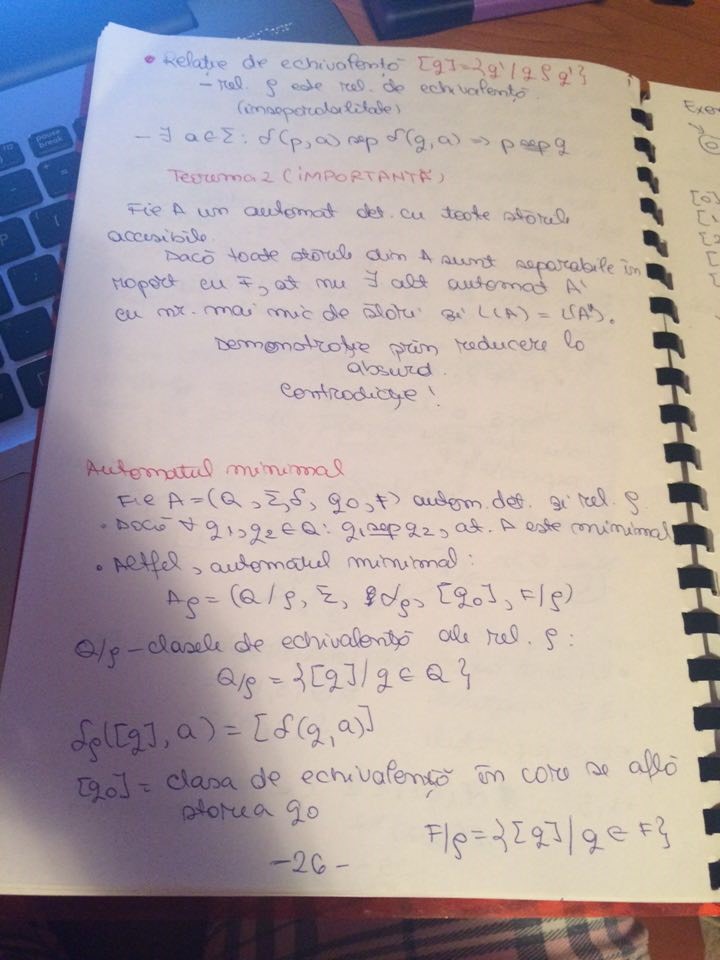 • Relație de echivalență [q]={q'/q ρ q'}
- rel. ρ este rel. de echivalență
(inseparabilitate)
- ∃ a∈Σ: δ(p,a) sep δ(q,a) => p sep q
Teorema 2 (IMPORTANTĂ)
Fie A un automat det. cu toate stările
accesibile.
Dacă toate stările din A sunt separabile în
raport cu F, at nu ∃ alt automat A'
cu nr. mai mic de stări și L(A) = L(A').
Demonstrație prin reducere la
absurd.
Contradicție!
Automatul minimal
Fie A=(Q, Σ, δ, q0, F) autom. det. și rel. ρ.
• Dacă ∀ q1, q2 ∈ Q: q1 sep q2, at. A este minimal
• Altfel, automatul minimal:
Aρ=(Q/ρ, Σ, δρ, [q0], F/ρ)
Q/ρ - clasele de echivalență ale rel. ρ:
Q/ρ = {[q]/q ∈ Q}
δρ([q], a) = [δ(q,a)]
[q0] = clasa de echivalență în care se află
starea q0
F/ρ={[q]/q ∈ F}
-26-
pause
break
Exe
[0]
[1
[2
[
[